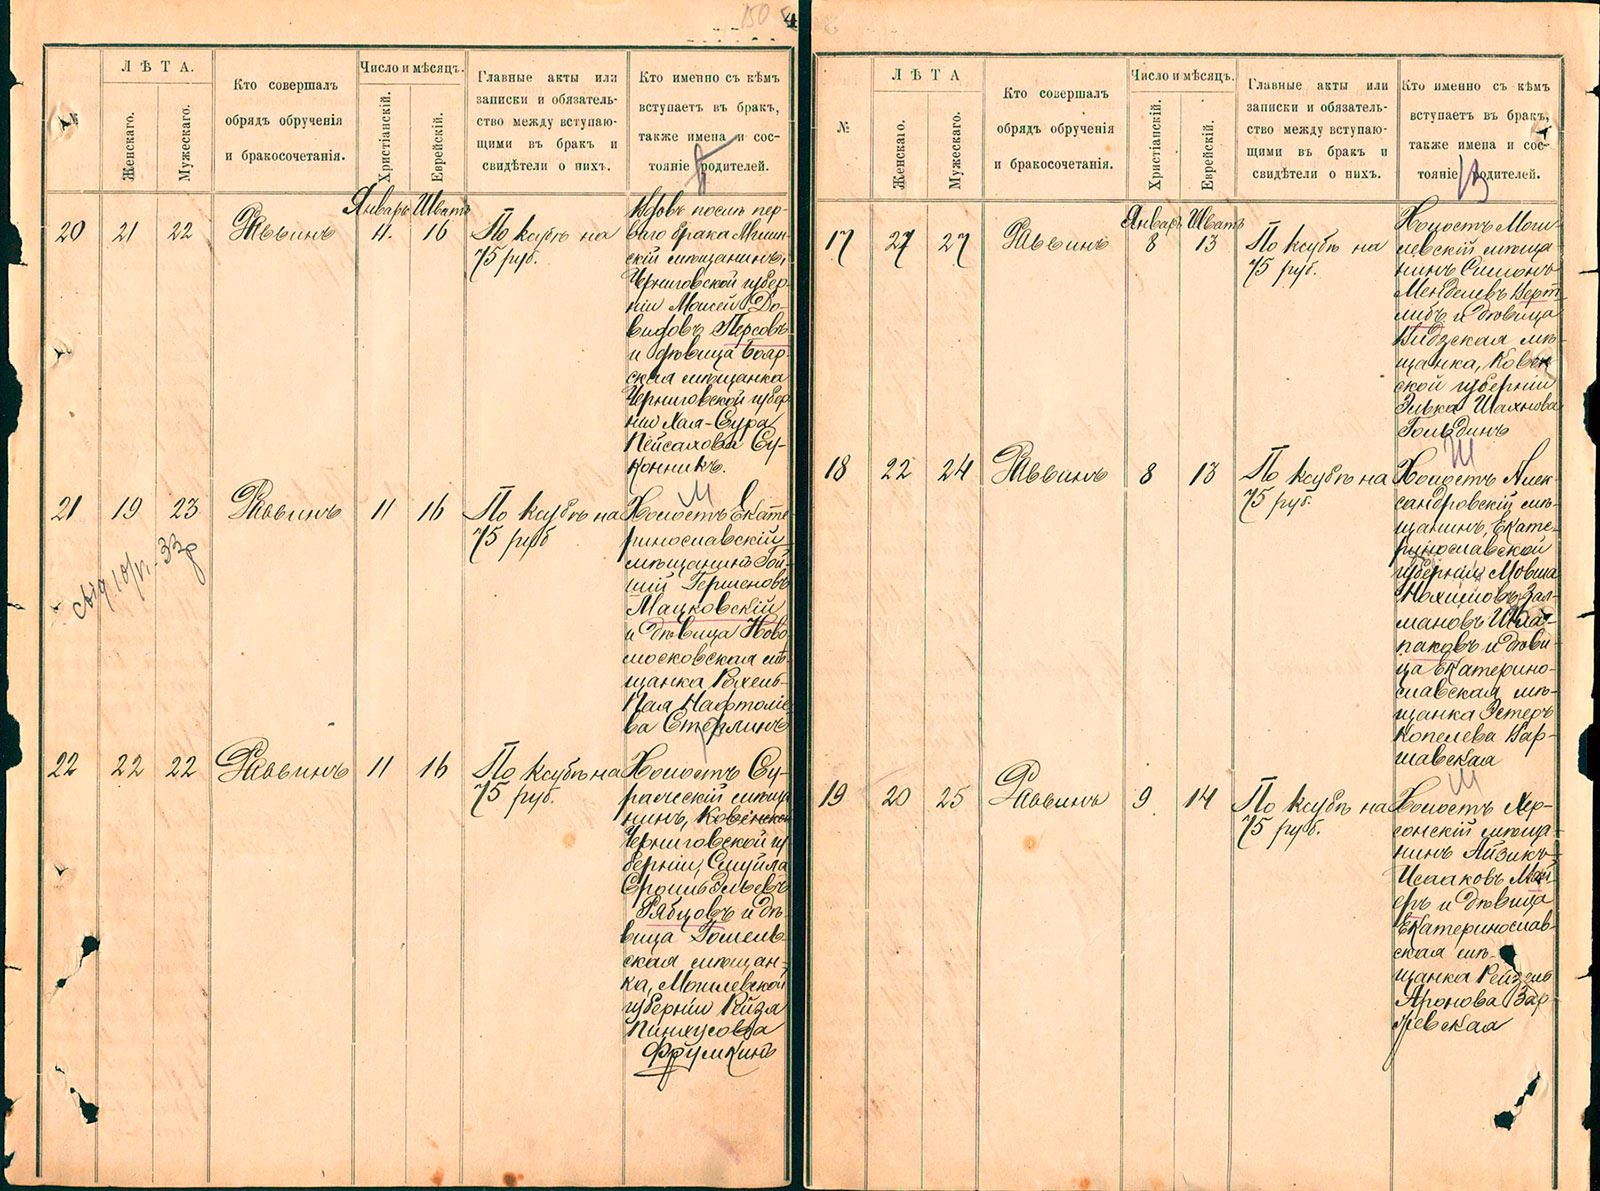 150
4
№
ЛѢТА.
Женскаго.
Мужескаго.
Кто совершалъ
обрядъ обрученія
и бракосочетанія.
Число и мѣсяцъ.
Христіанскій.
Еврейскій.
Главные акты или
записки и обязатель-
ство между вступаю-
щими въ бракъ и
свидѣтели о нихъ.
Кто именно съ кѣмъ
вступаетъ въ бракъ,
также имена и сос-
тояніе родителей.
Январь Шватъ
20 21 22 Раввинъ 11 16
По ксубѣ на
75 руб.
Вдовъ послѣ пер-
ваго брака Мглин-
скій мѣщанинъ,
Черниговской губер-
ніи Моисей До-
видовъ Персовъ
и дѣвица Бояр-
ская мѣщанка
Черниговской губер-
ніи Хая-Сура
Пейсахова Су-
конникъ.
21 19 23 Раввинъ 11 16
По ксубѣ на
75 руб
Ш
Холостъ Екате-
ринославскій
мѣщанинъ Гой-
ший Гершеновъ
Мацковскій
и дѣвица Ново
московская мѣ-
щанка Рохель-
Пая Нафтоліе
ва Стерлинъ
22 22 22 Раввинъ 11 16
По ксубѣ на
75 руб.
Холостъ Су-
ражскій мѣща
нинъ, Ковенской
Черниговской гу
берніи, Смуйла
Сроиль-Ельевъ
Рябцовъ и дѣ-
вица Гомель-
ская мѣщан-
ка, Могилевской
губерніи Рейзя
Пинхусовва
Фрумкинъ
№
ЛѢТА
Женскаго.
Мужескаго.
Кто совершалъ
обрядъ обрученія
и бракосочетанія.
Число и мѣсяцъ.
Христіанскій.
Еврейскій.
Главные акты или
записки и обязатель-
ство между вступаю-
щими въ бракъ и
свидѣтели о нихъ.
Кто именно съ кѣмъ
вступаетъ въ бракъ,
также имена и сос-
тояніе родителей.
Январь Шватъ
17 27 27 Раввинъ 8 13
По ксубѣ на
75 руб.
Холостъ Моги-
левскій мѣща
нинъ Симонъ
Менделевъ Верт
либъ и дѣвица
Видзская мѣ-
щанка, Ковен
ской губерніи
Элька Шахнова
Гольдинъ
18 22 24 Раввинъ 8 13
По ксубѣ на
75 руб.
Ш
Холостъ Алек-
сандровскій мѣ-
щанинъ, Екате-
ринославской
губерніи Мовша
Нохимовъ-Зал-
мановъ Шка-
паковъ и дѣви-
ца Екатерино-
славская мѣ-
щанка Эстеръ
Копелева Вар-
шавская
19 20 25 Раввинъ 9 14
По ксубѣ на
75 руб.
Ш
Холостъ Хер-
сонскій мѣща-
нинъ Айзикъ
Исааковъ Май-
еръ и дѣвица
Екатеринослав-
ская мѣ-
щанка Рейзель
Аронова Зар-
жевская